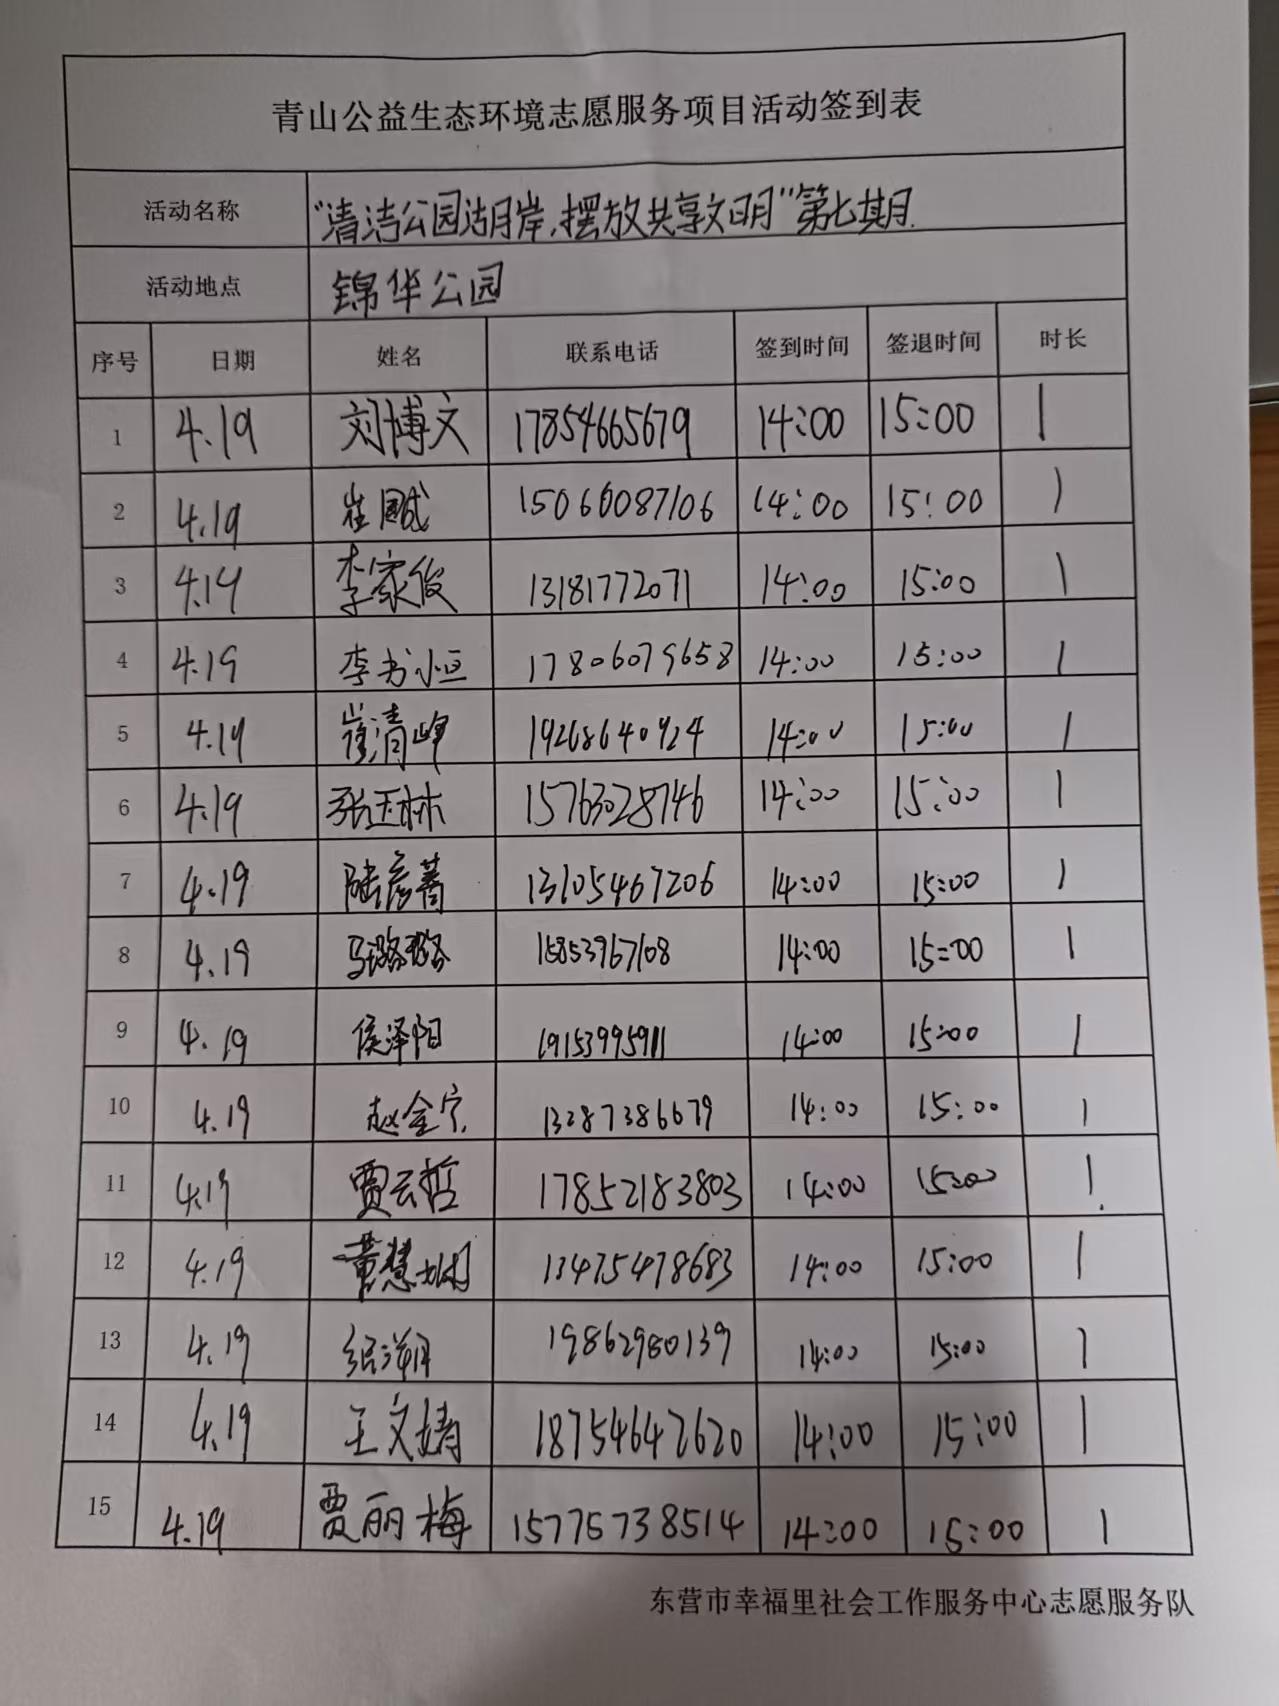 青山公益生态环境志愿服务项目活动签到表
活动名称 "清洁公园湖岸,摆放共享文明"第七期.
活动地点 锦华公园
序号 日期 姓名 联系电话 签到时间 签退时间 时长
1 4.19 刘博文 17854665679 14:00 15:00 1
2 4.19 崔 15060087106 14:00 15:00 1
3 4.19 李家俊 13181772071 14:00 15:00 1
4 4.19 李书恒 17806079658 14:00 15:00 1
5 4.19 崔清峰 19268640924 14:00 15:00 1
6 4.19 张玉林 15763028746 14:00 15:00 1
7 4.19 陆彦菁 13105467206 14:00 15:00 1
8 4.19 马璐璐 15853967108 14:00 15:00 1
9 4.19 侯泽阳 19153995911 14:00 15:00 1
10 4.19 赵金宁 13287386679 14:00 15:00 1
11 4.19 贾云哲 17852183803 14:00 15:00 1
12 4.19 14:00 15:00 1
13 4.19 19862980139 14:00 15:00 1
14 4.19 王文婧 18754642620 14:00 15:00 1
15 4.19 贾丽梅 15775738514 14:00 15:00 1
东营市幸福里社会工作服务中心志愿服务队